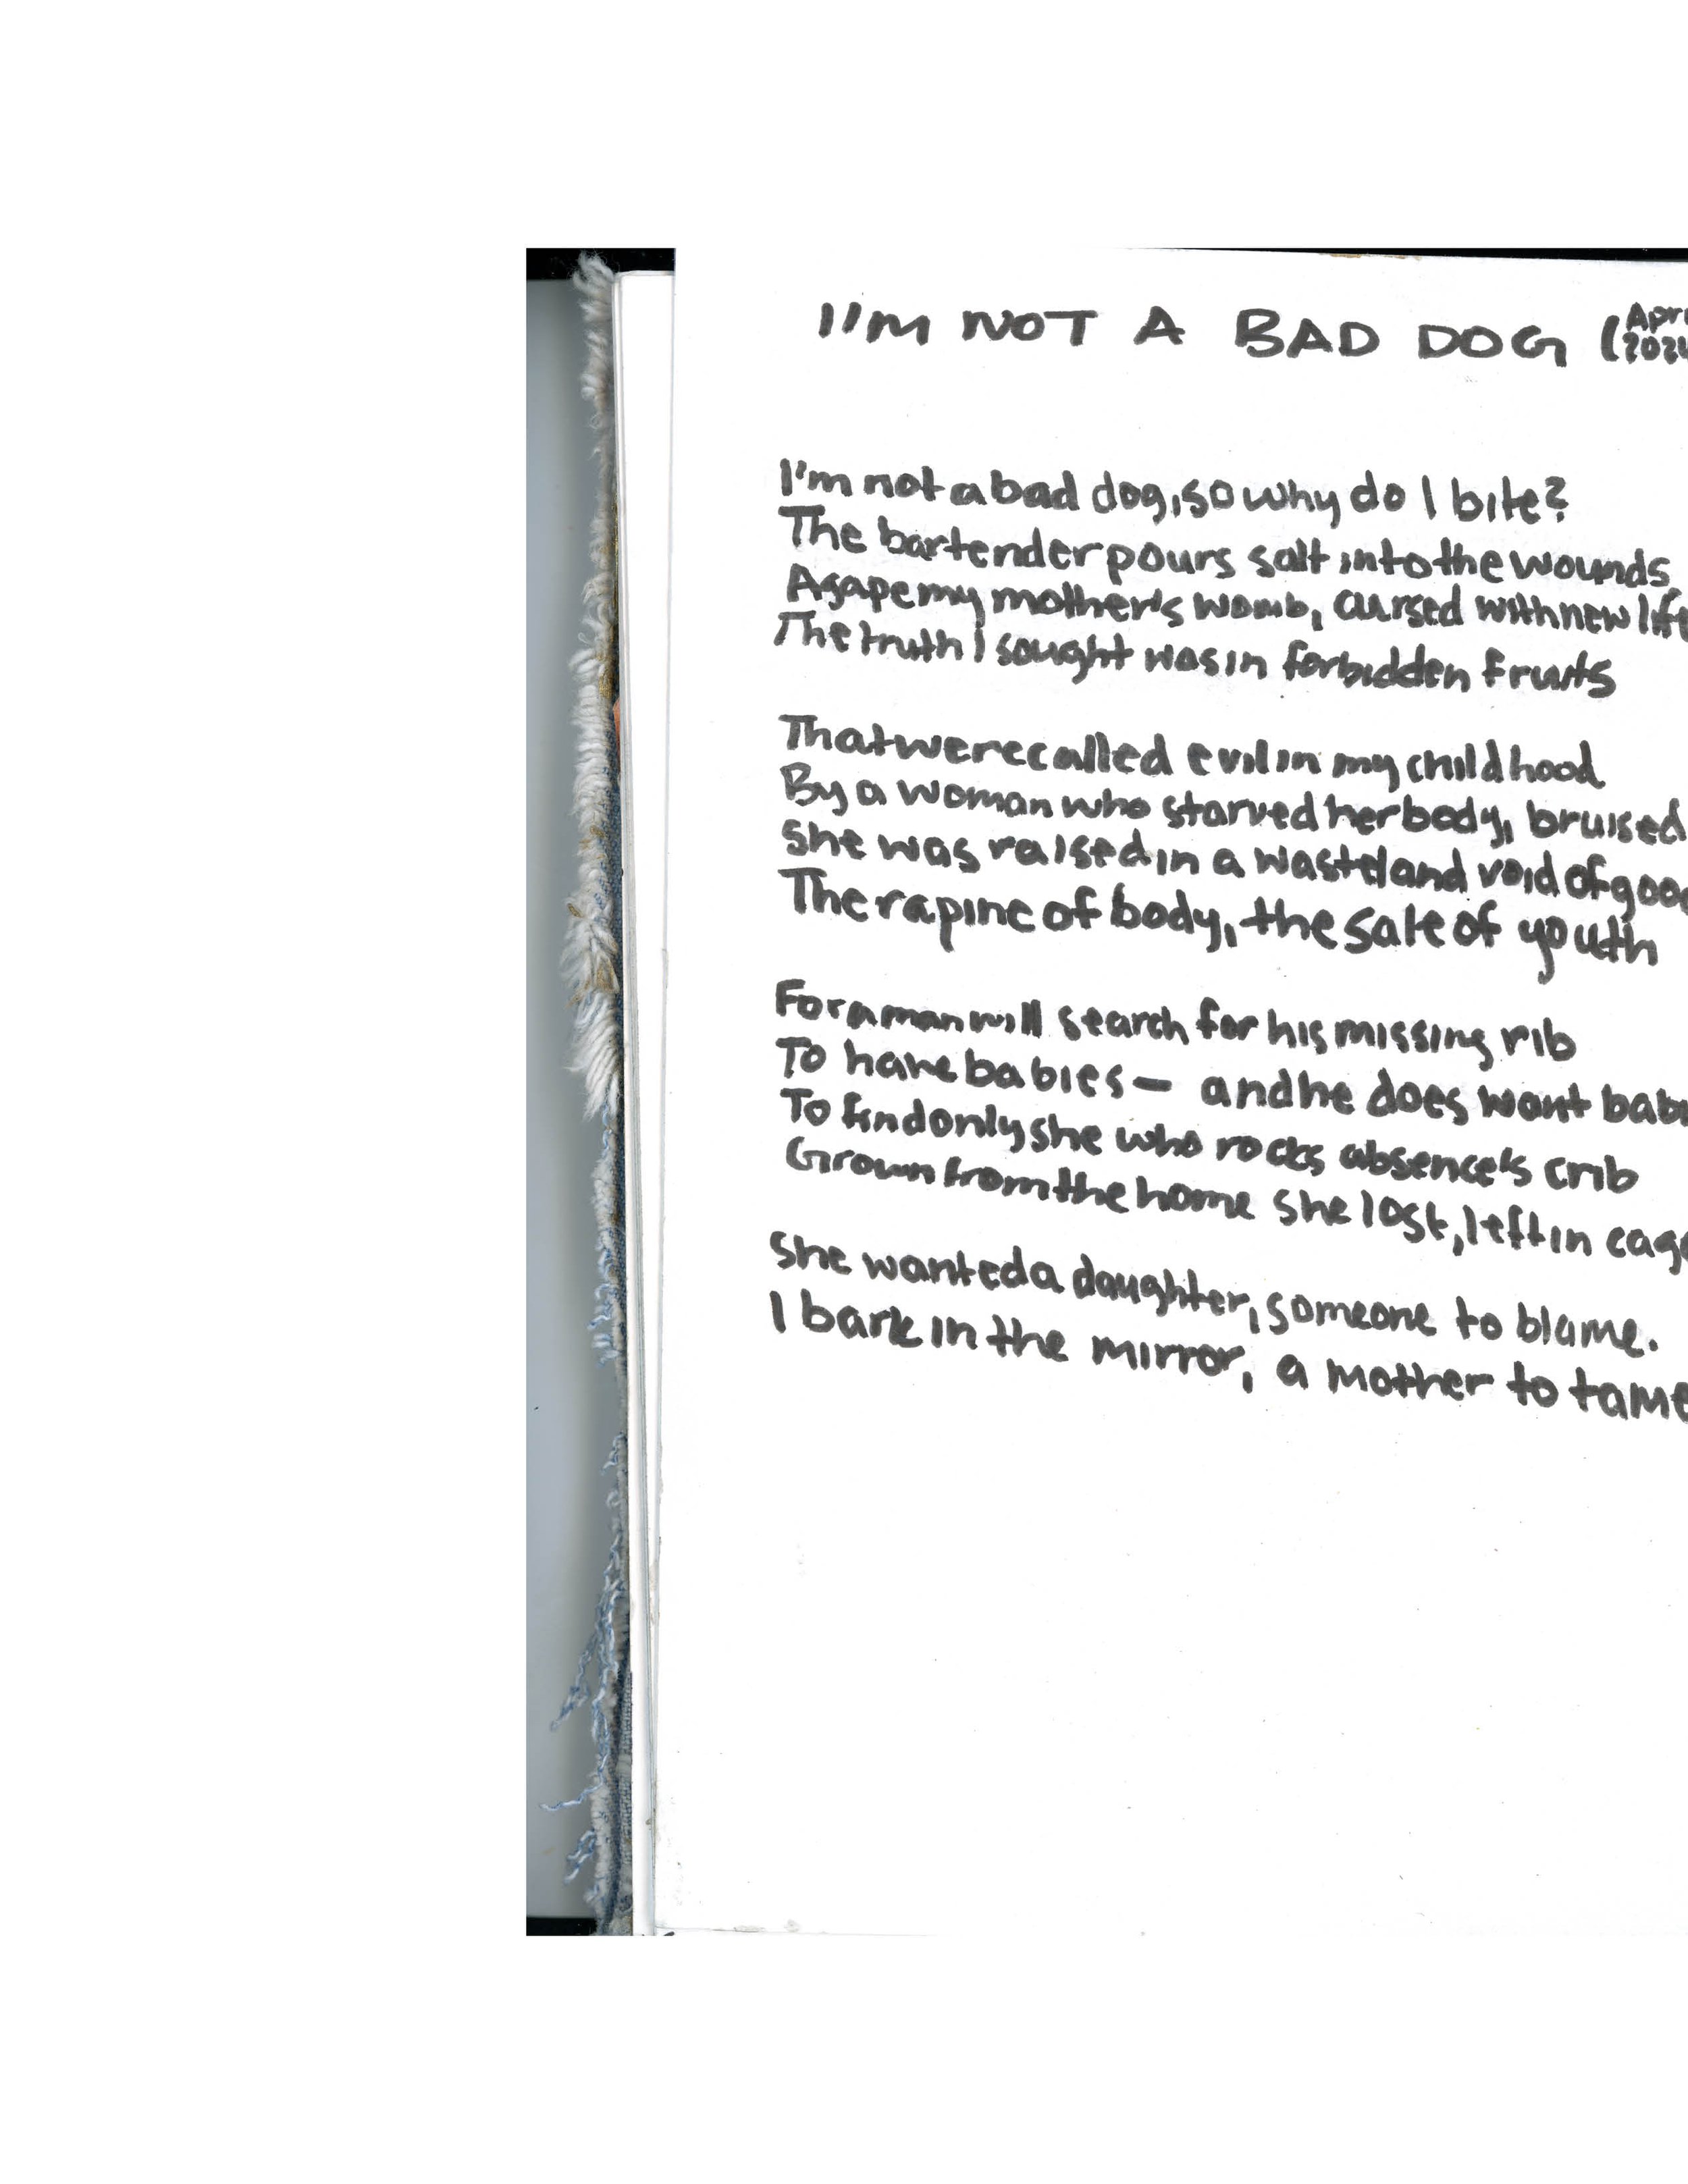 I'M NOT A BAD DOG (Apr
202
I'm not a bad dog, so why do I bite?
The bartender pours salt into the wounds
Agape my mother's womb, cursed with new life
The truth I sought was in forbidden fruits
That were called evil in my childhood
By a woman who starved her body, bruised
She was raised in a wasteland void of goo
The rapine of body, the sale of youth
For a man will search for his missing rib
To have babies — and he does want bab
To find only she who rocks absence's crib
Grown from the home she lost, left in cag
She wanted a daughter, someone to blame.
I bark in the mirror, a mother to tame